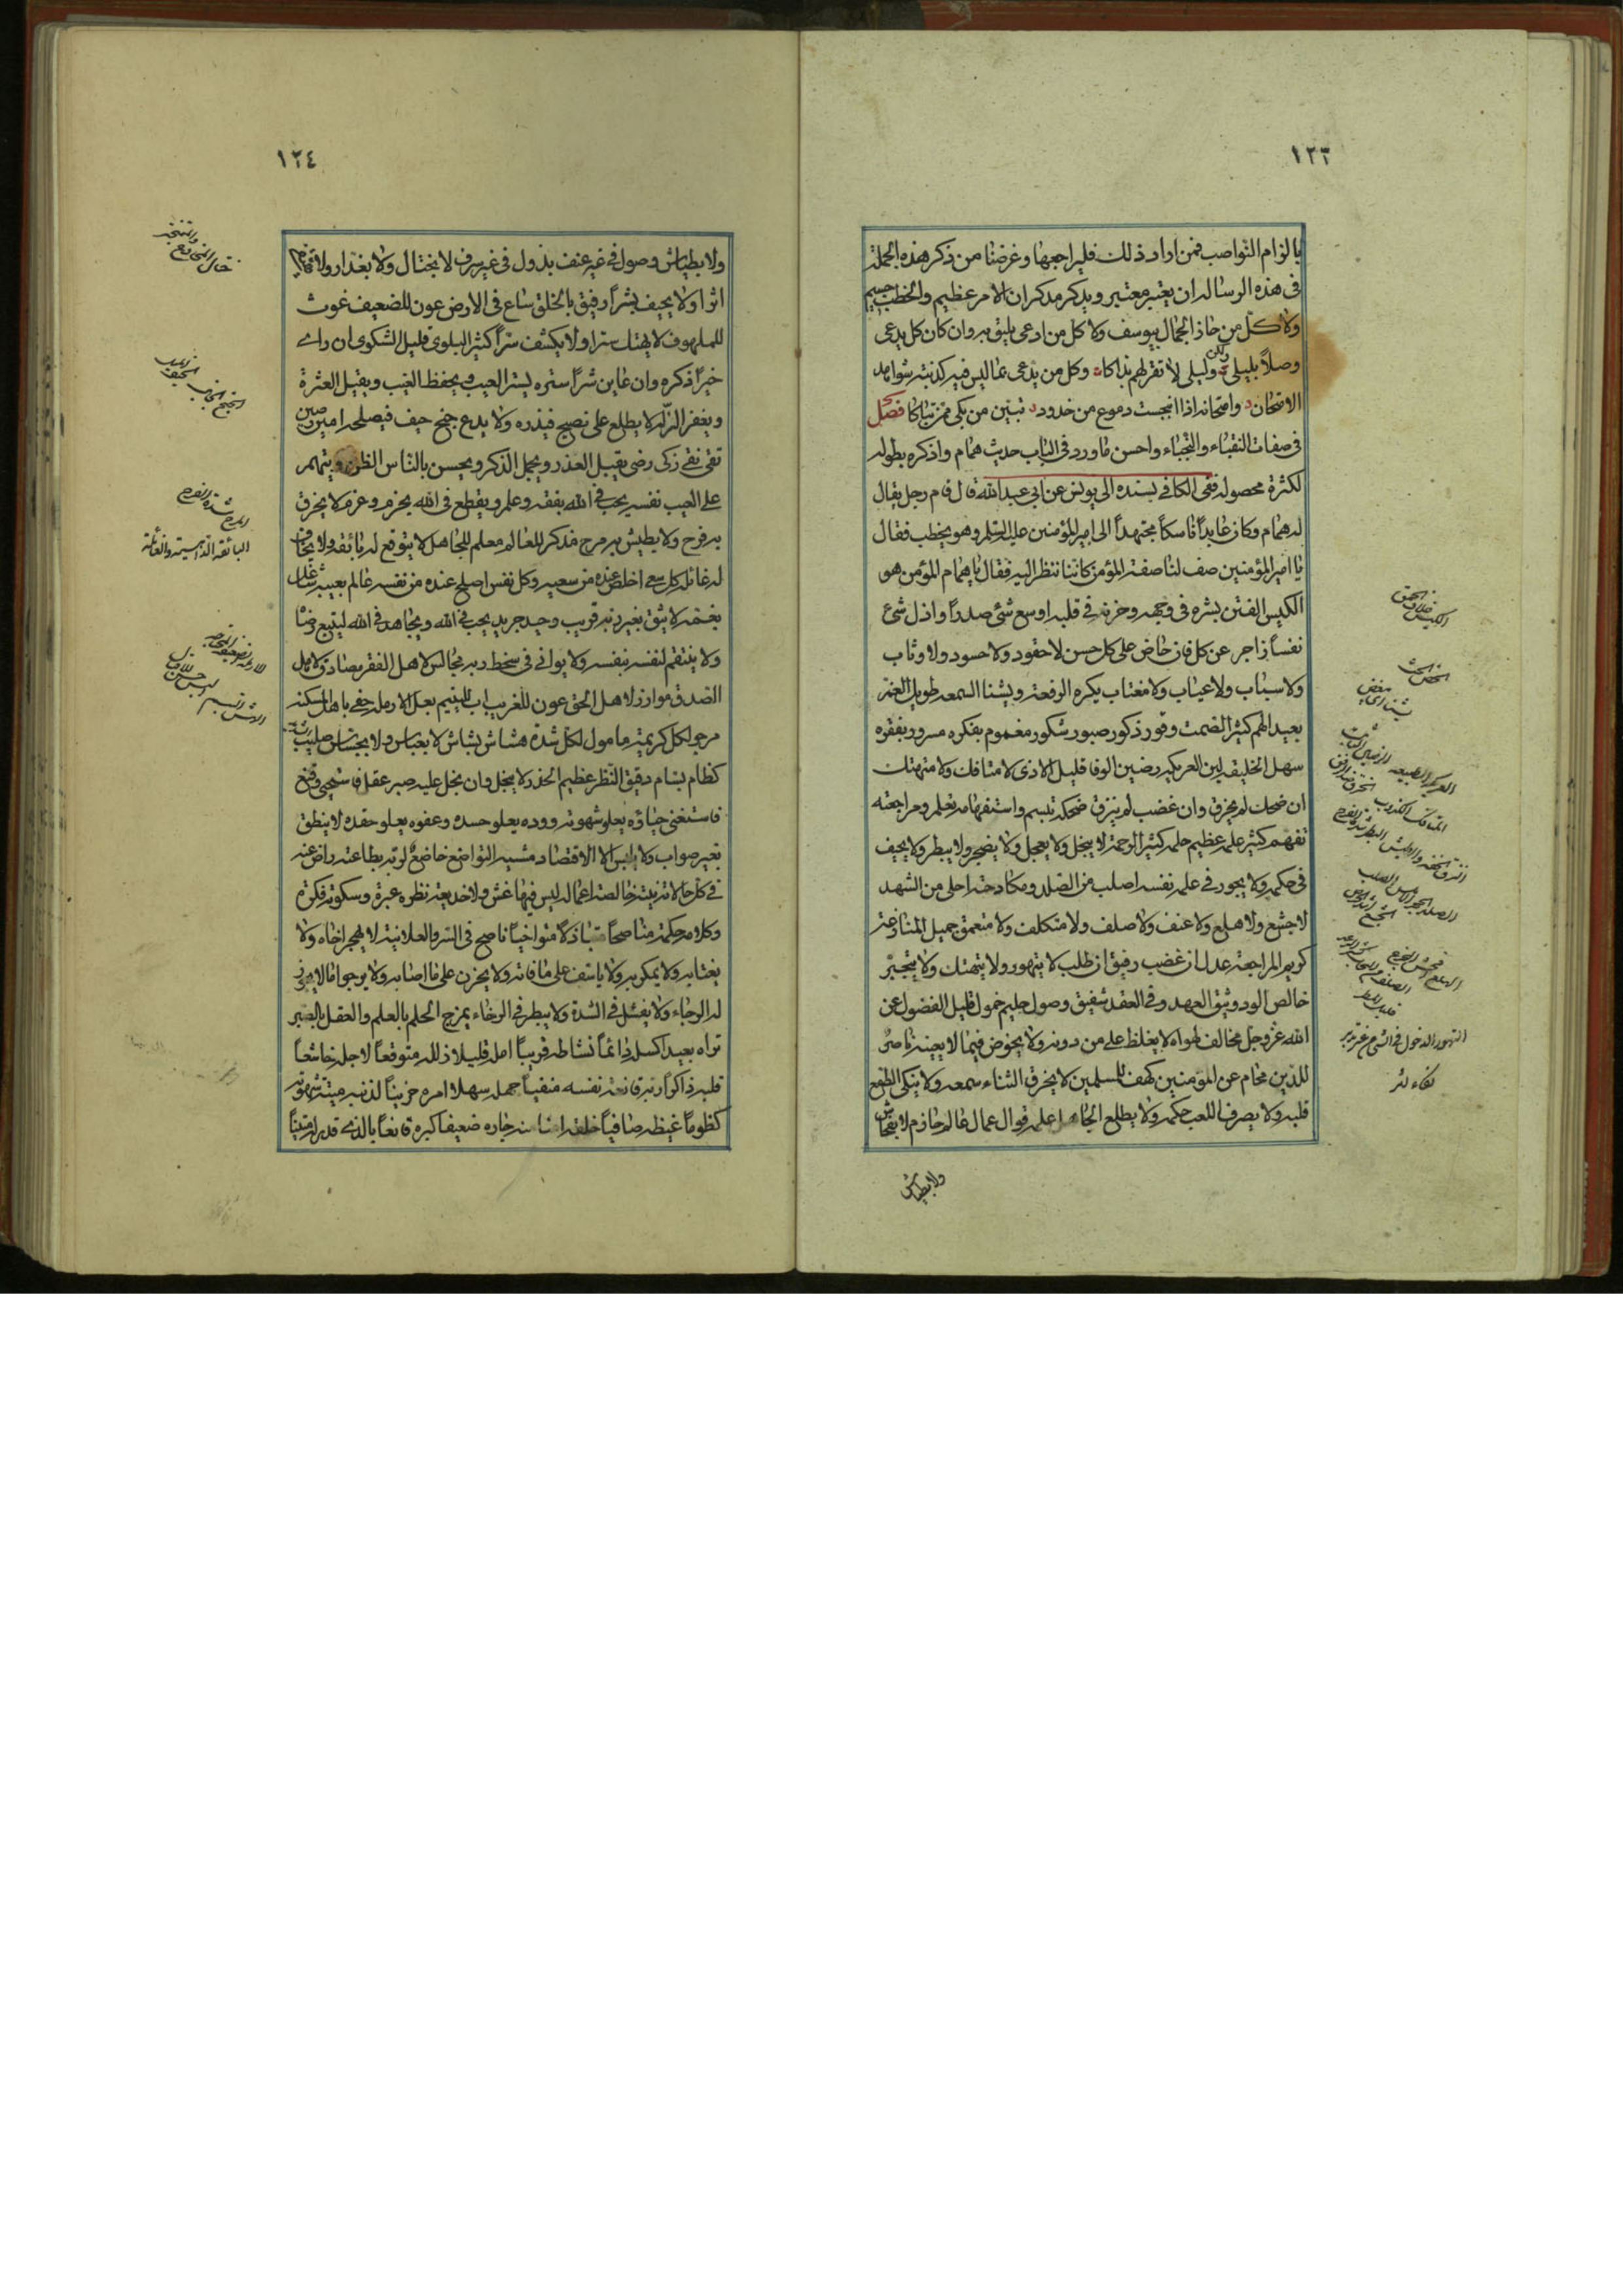 ١٢٣
بالزام النواصب فمن اراد ذلك فليراجعها وغرضنا من ذكر هذه الجملة
فى هذه الرساله ان يعتبر معتبر ويذكر مدكر ان الامر عظيم والخطب جسيم
ولا كل من حاز الجمال بيوسف ولا كل من ادعى يليق به وان كان كل يدعى
وصلاً بليلى وليلى لا تقر لهم بذاكا وكل من يدعى بما ليس فيه كذبته شواهد
الامتحان وامتحانه اذا انبجست دموع من خدود تبين من بكى ممن تباكا فصل
فى صفات النقباء والنجباء واحسن ما ورد فى الباب حديث همام واذكره بطوله
لكثرة محصوله ففى الكافى بسنده الى يونس عن ابى عبدالله قال قام رجل يقال
له همام وكان عابداً ناسكاً مجتهداً الى امير المؤمنين عليه السلم وهو يخطب فقال
يا امير المؤمنين صف لنا صفة المؤمن كاننا ننظر اليه فقال يا همام المؤمن هو
الكيس الفتن بشره فى وجهه وحزنه فى قلبه اوسع شئ صدراً واذل شئ
نفساً زاجر عن كل فان حاض على كل حسن لا حقود ولا حسود ولا وثاب
ولا سباب ولا عياب ولا مغتاب يكره الرفعة ويشنا السمعه طويل الغم
بعيد الهم كثير الصمت وقور ذكور صبور شكور مغموم بفكره مسرور بفقره
سهل الخليقه لين العريكه رضين الوفا قليل الاذى لا متافك ولا متهتك
ان ضحك لم يخرق وان غضب لم ينزق ضحكه تبسم واستفهامه تعلم ومراجعته
تفهم كثير علمه عظيم حلمه كثير الرحمة لا يبخل ولا يعجل ولا يضجر ولا يبطر ولا يحيف
فى حكمه ولا يجور فى علمه نفسه اصلب من الصلد ومكادحته احلى من الشهد
لا جشع ولا هلع ولا عنف ولا صلف ولا متكلف ولا متعمق جميل المنازعة
كريم المراجعة عدل ان غضب رفيق ان طلب لا يتهور ولا يتهتك ولا يتجبر
خالص الود وثيق العهد وفى العقد شفيق وصول حليم خمول قليل الفضول عن
الله عز وجل مخالف لهواه لا يغلظ على من دونه ولا يخوض فيما لا يعينه ناصر
للدين محام عن المؤمنين كهف للمسلمين لا يخرق الثناء سمعه ولا ينكى الطمع
قلبه ولا يصرف اللعب حكمه ولا يطلع الجاهل علمه قوال عمال عالم حازم لا بفحاش
ولا بطياش
التهور الدخول فى الشئ من غير تدبر
١٢٤
ولا بطياش وصول فى غير عنف بذول فى غير سرف لا بختال ولا بغدار ولا
اثرا ولا يحيف بشراً رفيق بالخلق ساع فى الارض عون للضعيف غوث
للملهوف لا يهتك ستراً ولا يكشف ستراً كثير البلوى قليل الشكوى ان راى
خيراً ذكره وان عاين شراً ستره يستر العيب ويحفظ الغيب ويقيل العثرة
ويغفر الزلة لا يطلع على نصح فيذره ولا يدع جنح حيف فيصلحه امين رصين
تقى نقى زكى رضى يقبل العذر ويجمل الذكر ويحسن بالناس الظن ويتهم
على العيب نفسه يحب فى الله بفقه وعلم ويقطع فى الله بحزم وعزم لا يخرق
به فرح ولا يطيش به مرح مذكر للعالم معلم للجاهل لا يتوقع له بائقه ولا يخاف
له غائله كل سعى اخلص عنده من سعيه وكل نفس اصلح عنده من نفسه عالم بعيبه شاغل
بغمه لا يثق بغير ربه قريب وحيد جريد يحب فى الله ويجاهد فى الله ليتبع رضاه
ولا ينتقم لنفسه بنفسه ولا يوالى فى سخط ربه مجالس لاهل الفقر مصادق لاهل
الصدق موازر لاهل الحق عون للغريب اب لليتيم بعل الارمله حفى باهل المسكنه
مرجو لكل كريهة مامول لكل شدة هشاش بشاش لا بعباس ولا بجساس صليب
كظام بسام دقيق النظر عظيم الحذر لا يبخل وان بخل عليه صبر عقل فاستحيى وقنع
فاستغنى حياؤه يعلو شهوته ووده يعلو حسده وعفوه يعلو حقده لا ينطق
بغير صواب ولا يلبس الا الاقتصاد مشيه التواضع خاضع لربه بطاعته راض عنه
فى كل حالاته نيته خالصة اعماله ليس فيها غش ولا خديعة نظره عبرة وسكوته فكرة
وكلامه حكمة مناصحاً متباذلاً متواخياً ناصح فى السر والعلانية لا يهجر اخاه ولا
يغتابه ولا يمكر به ولا ياسف على ما فاته ولا يحزن على ما اصابه ولا يرجوا ما لا يجوز
له الرجاء ولا يفشل فى الشدة ولا يبطر فى الرخاء يمزج الحلم بالعلم والعقل بالصبر
تراه بعيداً كسله دائماً نشاطه قريباً امله قليلا زلله متوقعاً لاجله خاشعاً
قلبه ذاكراً ربه قانعة نفسه منفياً جهله سهلا امره حزيناً لذنبه ميتة شهوته
كظوماً غيظه صافياً خلقه امناً منه جاره ضعيفا كبره قانعاً بالذى قدر له متيناً